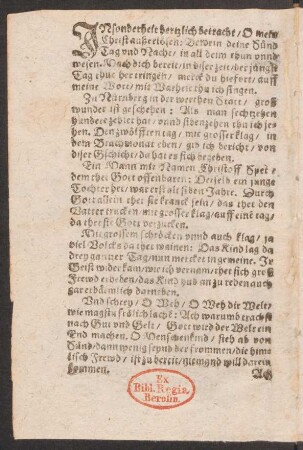 INsonderheit hertzlich betracht / O mein
Christ außerkohren: Bewein deine Sünd
Tag und Nacht / in all deim thun unnd
wesen. Mach dich bereit / in diser zeit / der jüngst
Tag thut her tringen / merck du hiefort / auff
meine Wort / mit Warheit thu ich singen.
Zu Nürnberg in der werthen Statt / groß
wunder ist geschehen: Als man sechtzehen
hundert gezehlet hat / und sibentzehen thu ich je-
hen. Den zwölfften tag / mit grosser klag / in
dem Brachmonat eben / gib ich bericht / von
diser Gschicht / do hat es sich begeben.
Ein Mann mit Namen Christoff Spet /
dem thet Gott offenbaren: Derselb ein junge
Tochter het / war erst alt siben Jahre. Durch
Gott allein thet sie kranck sein / das thet den
Vatter trucken / mit grosser klag / auff eine tag /
da thet sie Gott verzucken.
Mit grossem schröcken unnd auch klag / ja
viel Volcks da thet wainen: Das Kind lag da
drey gantzer Tag / nun mercket in gemeine. Jr
Geist widerkam / wie ich vernam / thet sich groß
Frewd erheben / das Kind hub an zu reden auch
gar erbärmlich darneben.
Und schery / O Weh / O Weh die Welt /
wie magstu frölich lachē: Ach warumb trachst
nach Gut und Gelt / Gott wird der Welt ein
End machen. O Menschenkind / steh ab von
Sünd / dann wenig seynd der frommen / die himm-
lisch Frewd / ist zu bereit / niemand will darein
kommen.
Ach
Ex
Bibl. Regia
Berolin.